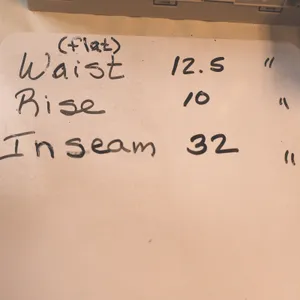 (flat)
Waist 12.5 "
Rise 10 "
Inseam 32 "